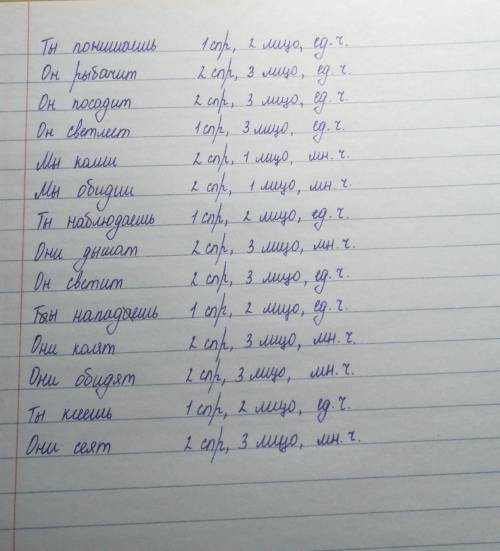 Ты понимаешь 1 спр, 2 лицо, ед. ч.
Он рыбачит 2 спр, 3 лицо, ед. ч.
Он посадит 2 спр, 3 лицо, ед. ч
Он светлеет 1 спр, 3 лицо, ед. ч.
Мы колим 2 спр, 1 лицо, мн. ч.
Мы обидим 2 спр, 1 лицо, мн. ч.
Ты наблюдаешь 1 спр, 2 лицо, ед. ч.
Они дышат 2 спр, 3 лицо, мн. ч.
Он светит 2 спр, 3 лицо, ед. ч.
Ты нападаешь 1 спр, 2 лицо, ед. ч.
Они колят 2 спр, 3 лицо, мн. ч.
Они обидят 2 спр, 3 лицо, мн. ч.
Ты клеешь 1 спр, 2 лицо, ед. ч.
Они сеят 2 спр, 3 лицо, мн. ч.